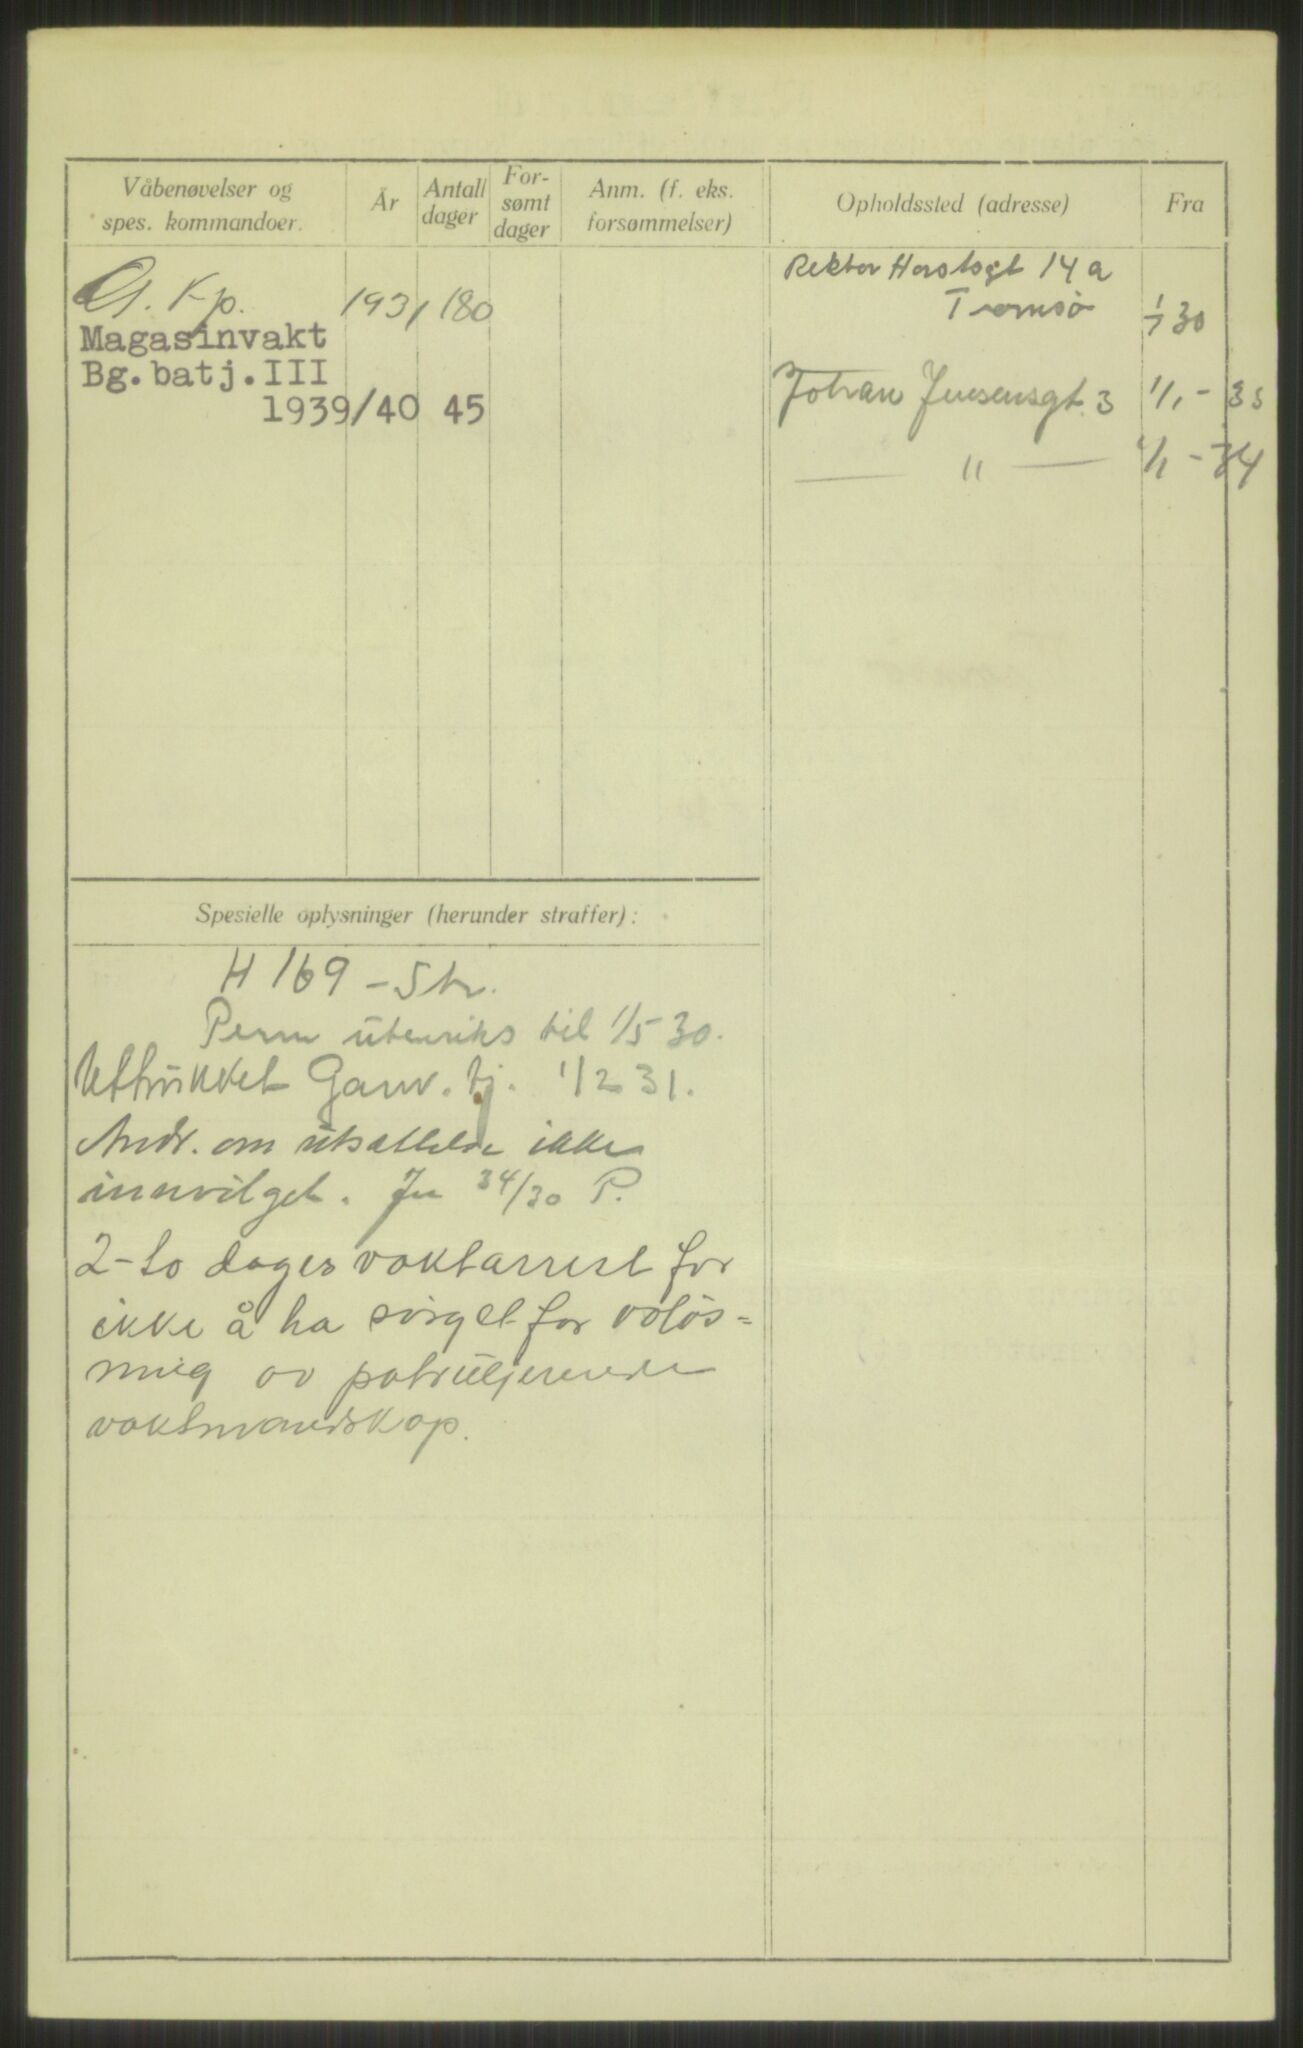 Våbenøvelser og
spes. kommandoer.
År
Antall
dager
For-
sømt
dager
Anm. (f. eks.
forsømmelser)
Opholdssted (adresse)
Fra
G. Kp. 1931 180
Magasinvakt
Bg.batj.III
1939/40 45
Rektor Horstsgt 14 a
Tromsö 1/7 30
Johan Jensensgt. 3 1/1 - 33
— " — 1/1 - 34
Spesielle oplysninger (herunder straffer):
H 169 - Str.
Perm utenriks til 1/5 30.
Uttrukket Garn. tj. 1/2 31.
Andr. om utsettelse ikke
innvilget. Jn 34/30 P.
2-to dages vaktarrest for
ikke å ha sörget for avlös=
ning av patruljerende
vaktmandskap.